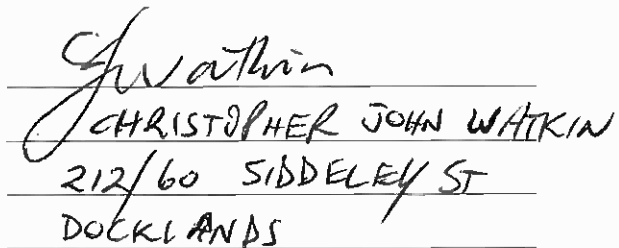 CJWatkin
CHRISTOPHER JOHN WATKIN
212/60 SIDDELEY ST
DOCKLANDS